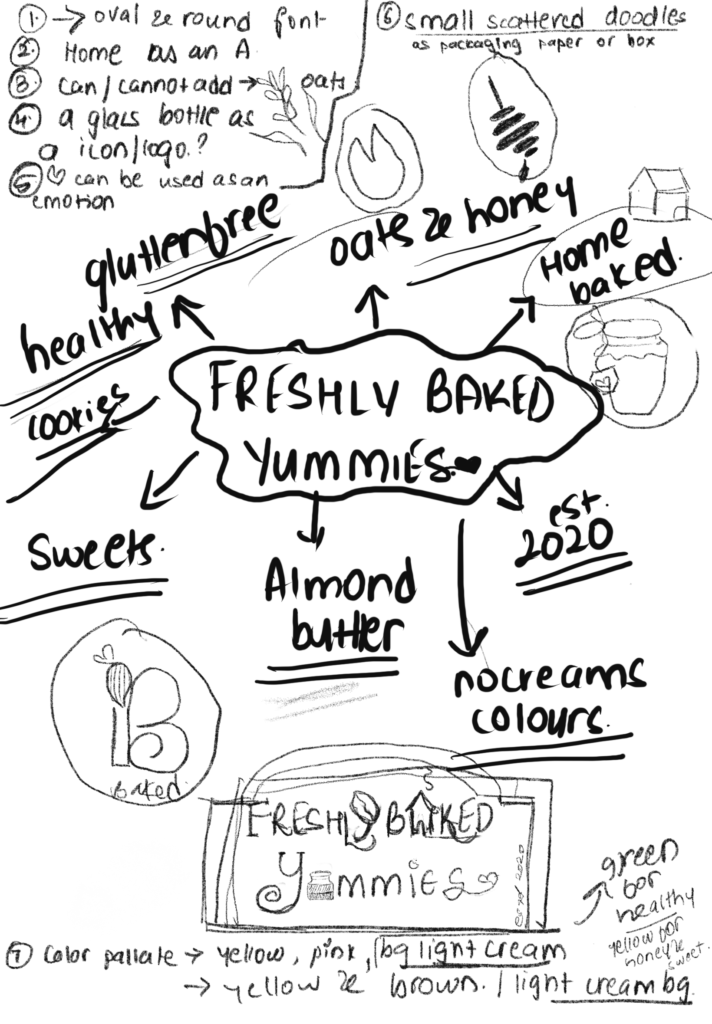 ① → oval & round font
② Home as an A
③ can/cannot add → oats
④ a glass bottle as
a icon/logo.?
⑤ ♡ can be used as an
emotion
⑥ small scattered doodles
as packaging paper or box
gluttenfree
oats & honey
Home
baked.
healthy
cookies
FRESHLY BAKED
YUMMIES.♥
Sweets.
est.
2020
Almond
butter
nocreams
colours.
B
Baked.
FRESHLY BAKED
Yummies♡
est 2020
green
for
healthy
yellow for
honey &
sweet.
⑦ Color pallate → yellow, pink, / bg light cream
→ yellow & brown. / light cream bg.